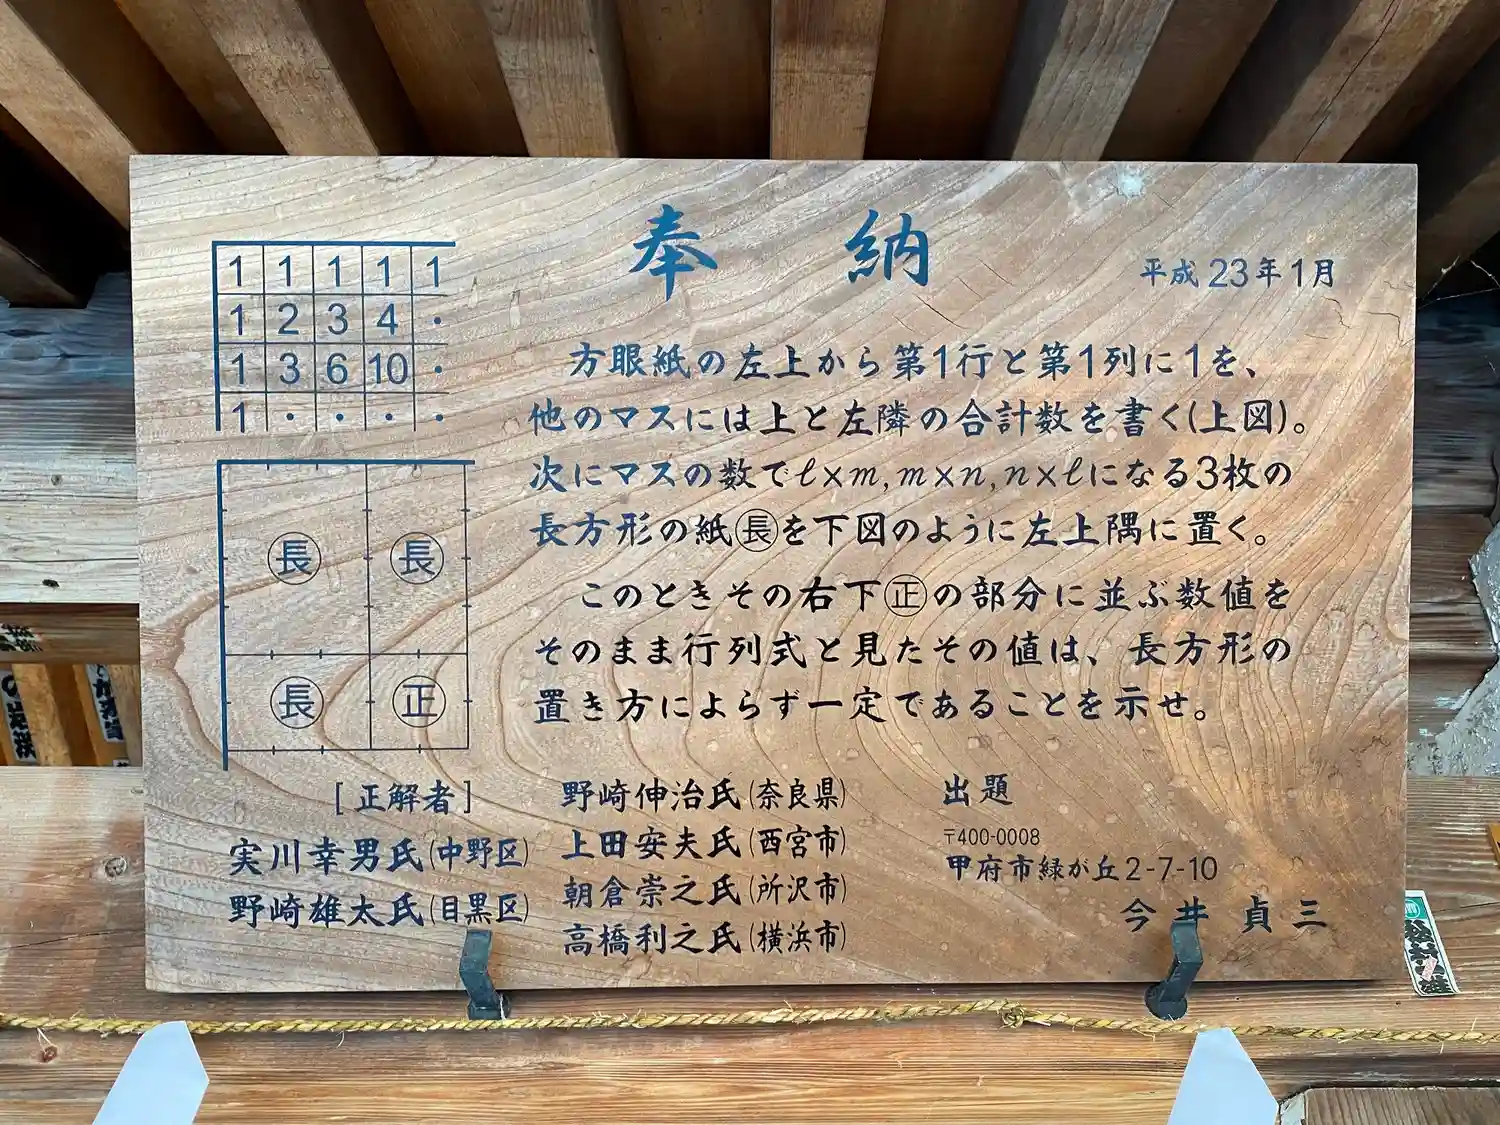 奉納
平成23年1月
1 1 1 1 1
1 2 3 4 ・
1 3 6 10 ・
1 ・ ・ ・ ・
方眼紙の左上から第1行と第1列に1を、
他のマスには上と左隣の合計数を書く(上図)。
次にマスの数でℓ×m,m×n,n×ℓになる3枚の
長方形の紙㊎を下図のように左上隅に置く。
このときその右下㊣の部分に並ぶ数値を
そのまま行列式と見たその値は、長方形の
置き方によらず一定であることを示せ。
長 長
長 正
[正解者]
実川幸男氏(中野区)
野崎雄太氏(目黒区)
野崎伸治氏(奈良県)
上田安夫氏(西宮市)
朝倉崇之氏(所沢市)
高橋利之氏(横浜市)
出題
〒400-0008
甲府市緑が丘2-7-10
今井 貞三